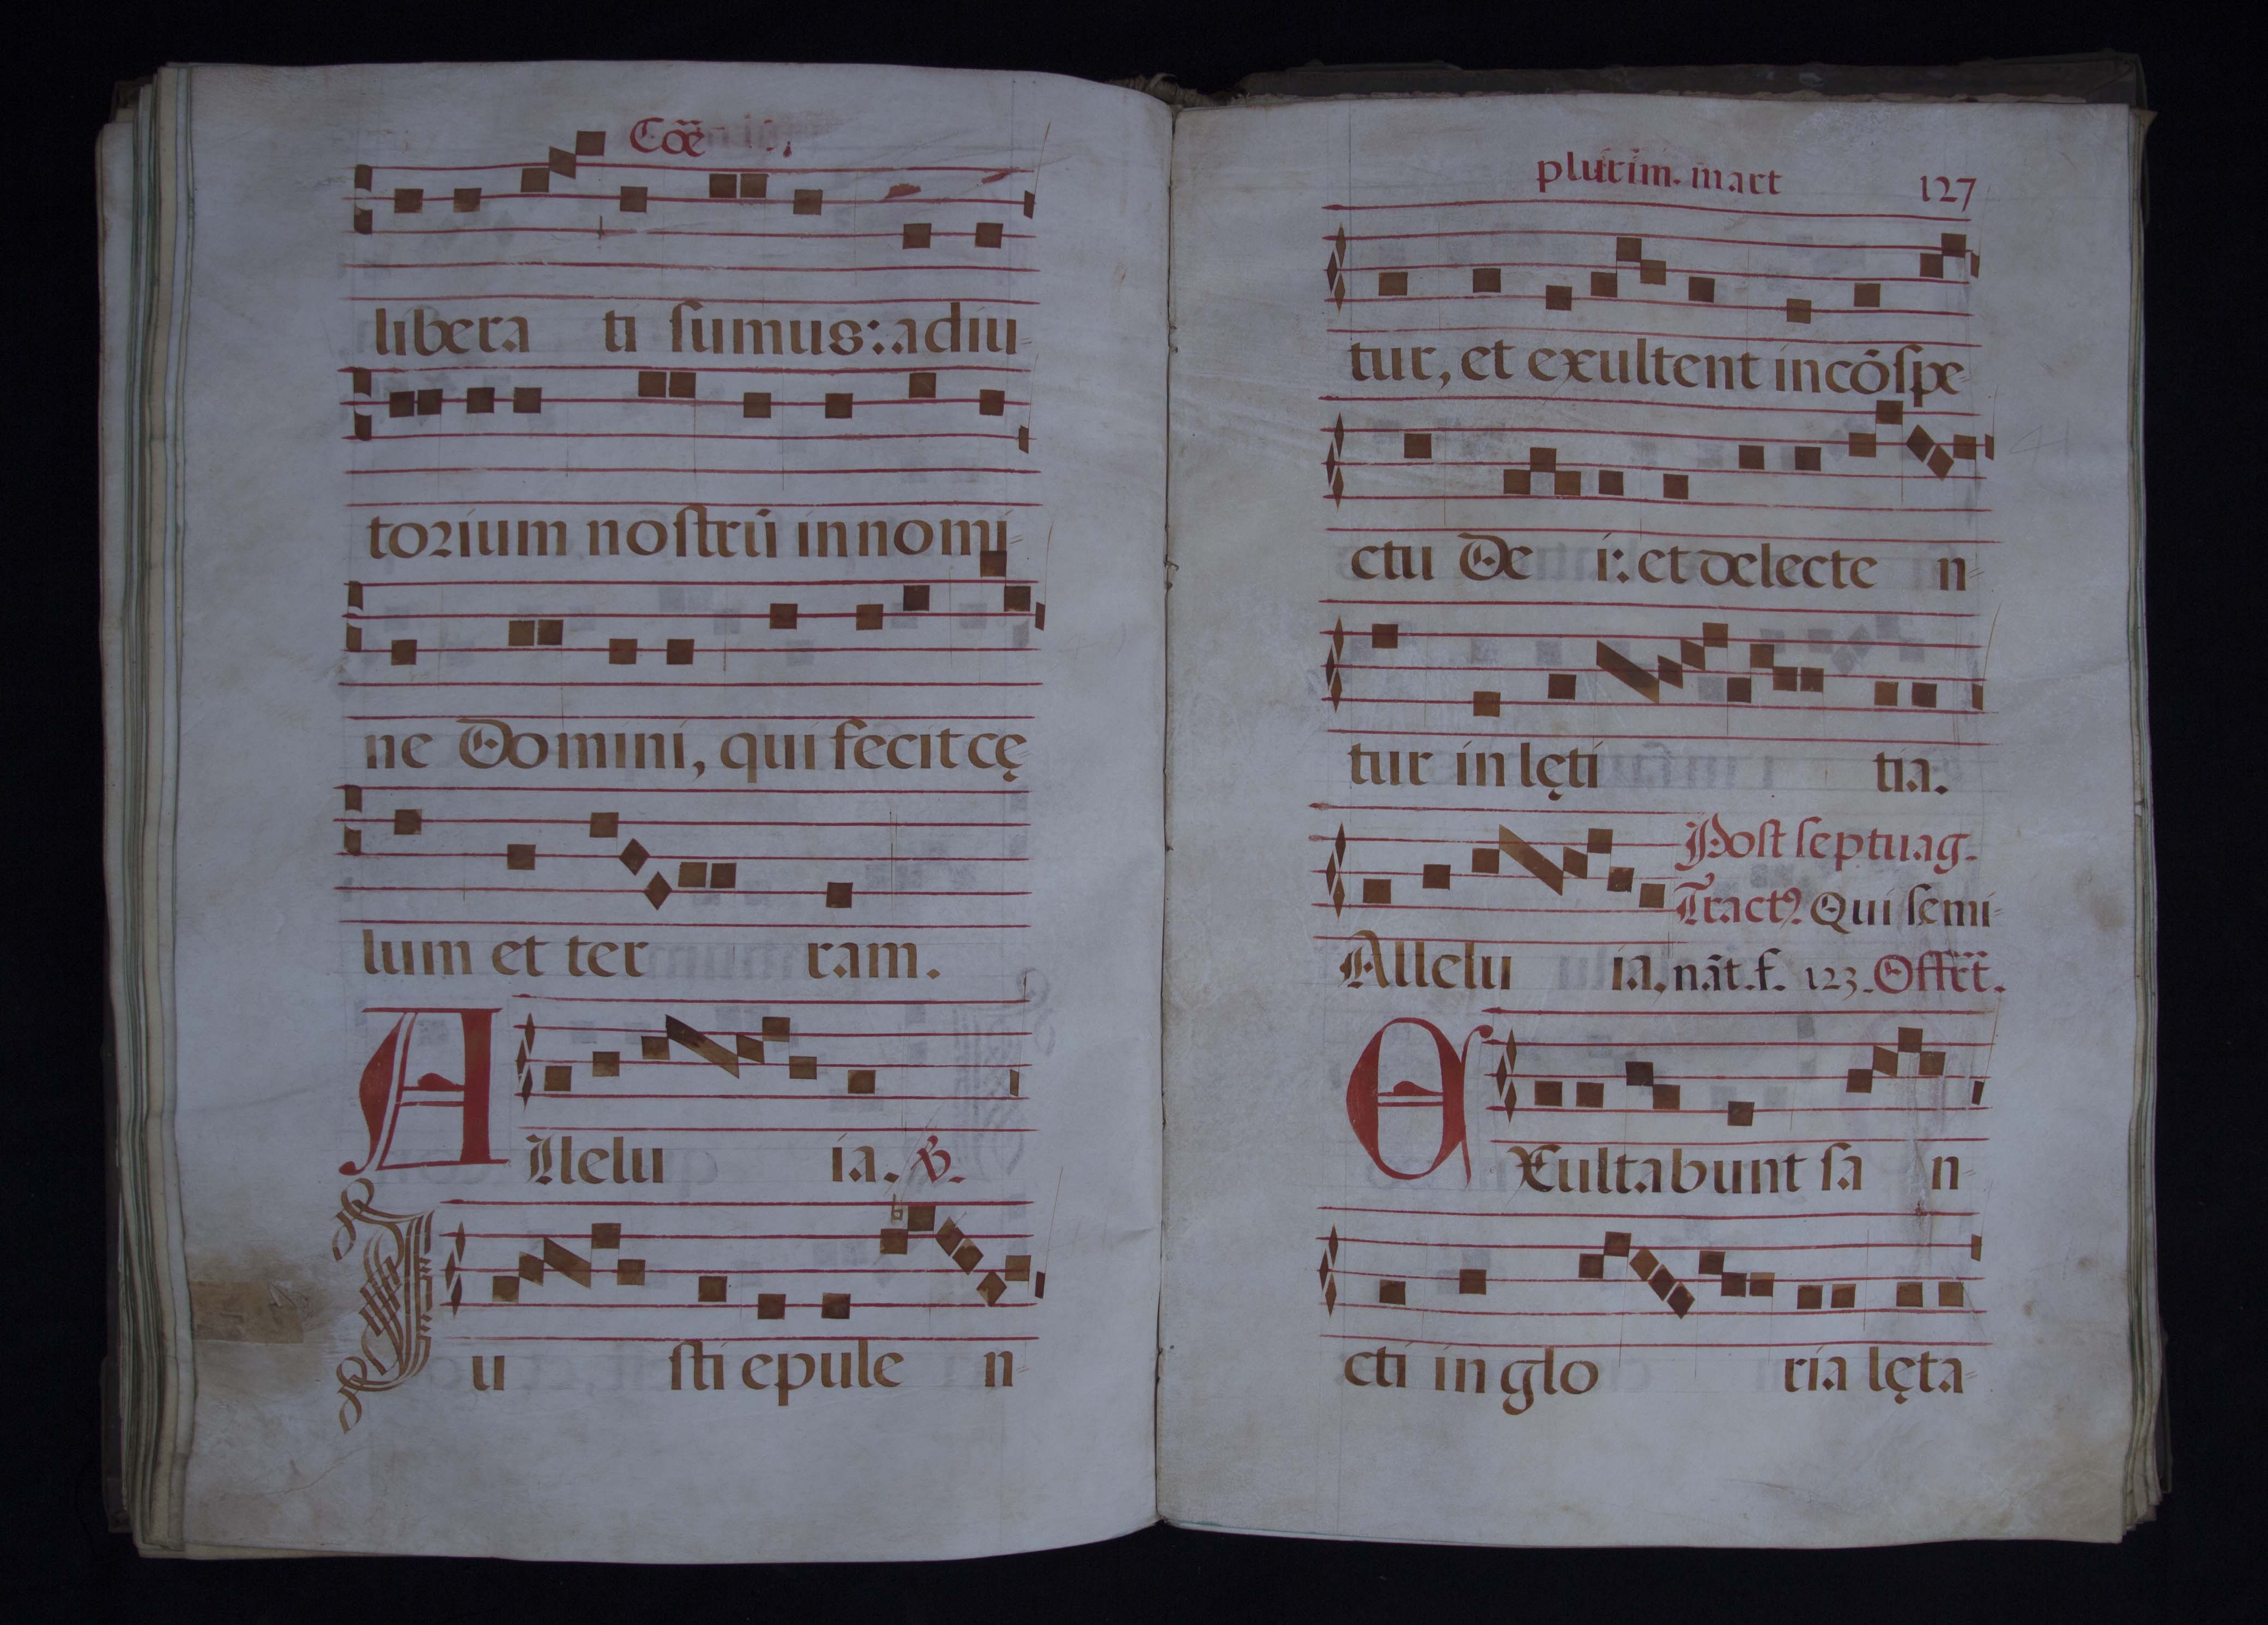 Cõe
libera ti ſumus: adiu-
torium noſtrū in nomi-
ne Domini, qui fecit cę
lum et ter ram.
Allelu ia. ℣.
Iu ſti epule n-
plurim. mart 127
tur, et exultent in cōſpe-
ctu De i: et delecte n-
tur in lęti tia.
Poſt ſeptuag.
Tractꝰ Qui ſemi-
Allelu ia, nāt. f. 123. Offēt.
EXultabunt ſa n-
cti in glo ria lęta-